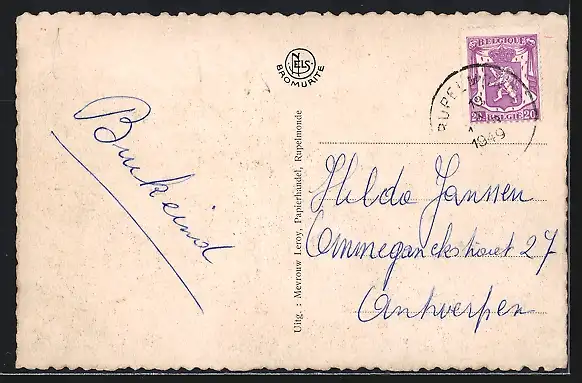 NELS
BROMURITE
BELGIQUE
20 BELGIE 20
RUPEL
19
1949
Uitg. : Mevrouw Leroy, Papierhandel, Rupelmonde
Hilda Janssen
Ommeganckstraat 27
Antwerpen